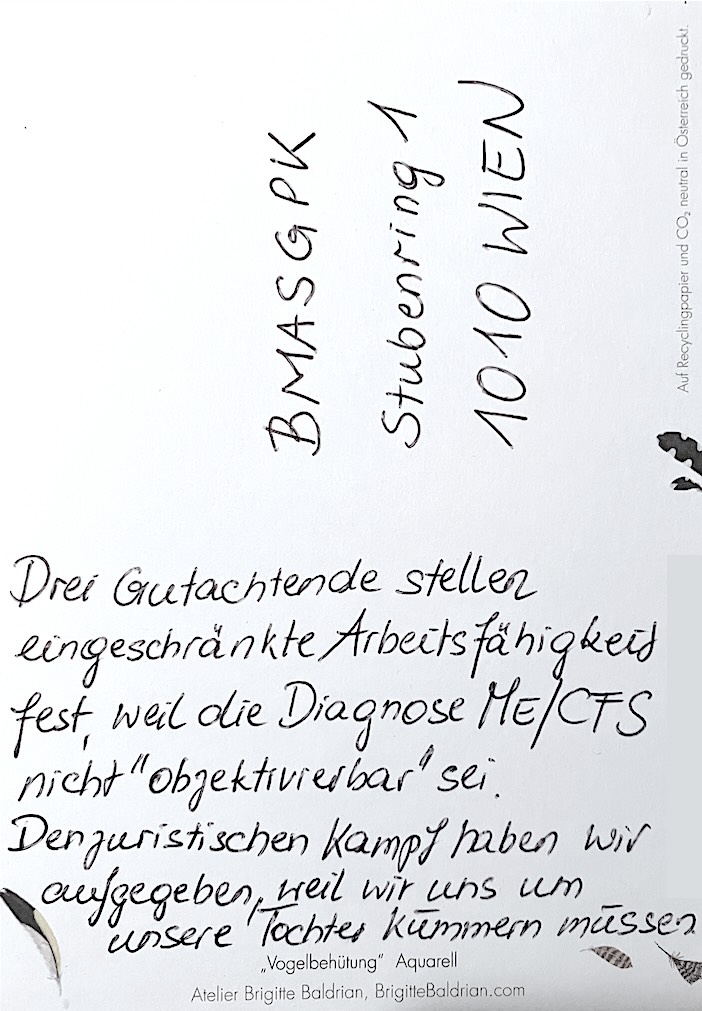 BMASGPK
Stubenring 1
1010 WIEN
Auf Recyclingpapier und CO₂ neutral in Österreich gedruckt.
Drei Gutachtende stellen
eingeschränkte Arbeitsfähigkeit
fest, weil die Diagnose ME/CFS
nicht "objektivierbar" sei.
Den juristischen Kampf haben wir
aufgegeben, weil wir uns um
unsere Tochter kümmern müssen
„Vogelbehütung" Aquarell
Atelier Brigitte Baldrian, BrigitteBaldrian.com